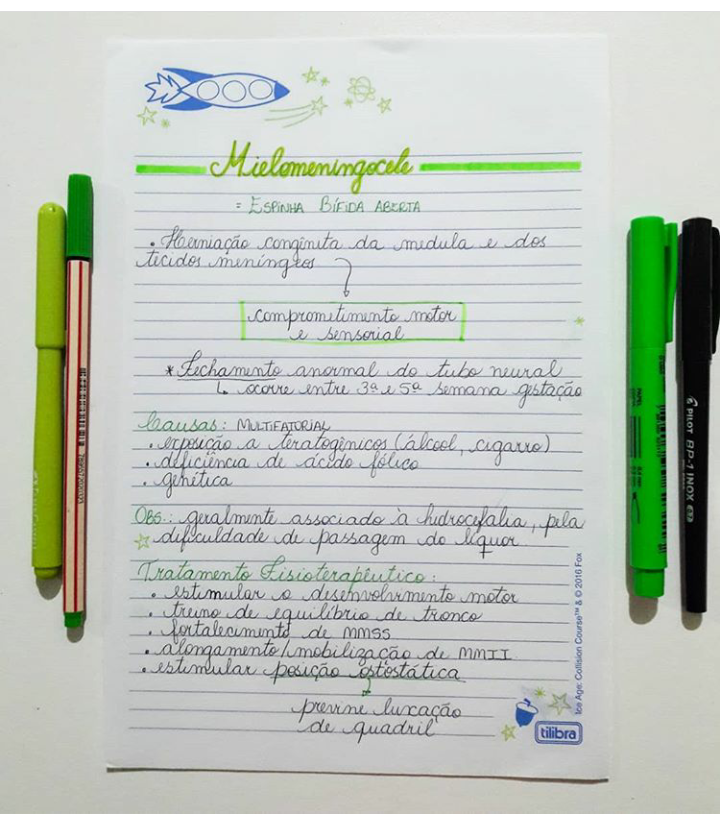 Mielomeningocele
= ESPINHA BÍFIDA ABERTA
• Herniação congênita da medula e dos
tecidos meníngeos
comprometimento motor
e sensorial
* Fechamento anormal do tubo neural
↳ ocorre entre 3ª e 5ª semana gestação
Causas: MULTIFATORIAL
• exposição a teratogênicos (álcool, cigarro)
• deficiência de ácido fólico
• genética
OBS.: geralmente associado à hidrocefalia, pela
dificuldade de passagem do líquor.
Tratamento Fisioterapêutico:
• estimular o desenvolvimento motor
• treino de equilíbrio de tronco
• fortalecimento de MMSS
• alongamento/mobilização de MMII
• estimular posição ostostática
previne luxação
de quadril
Ice Age: Collision Course™ & © 2016 Fox
tilibra
PILOT BP-1 INOX